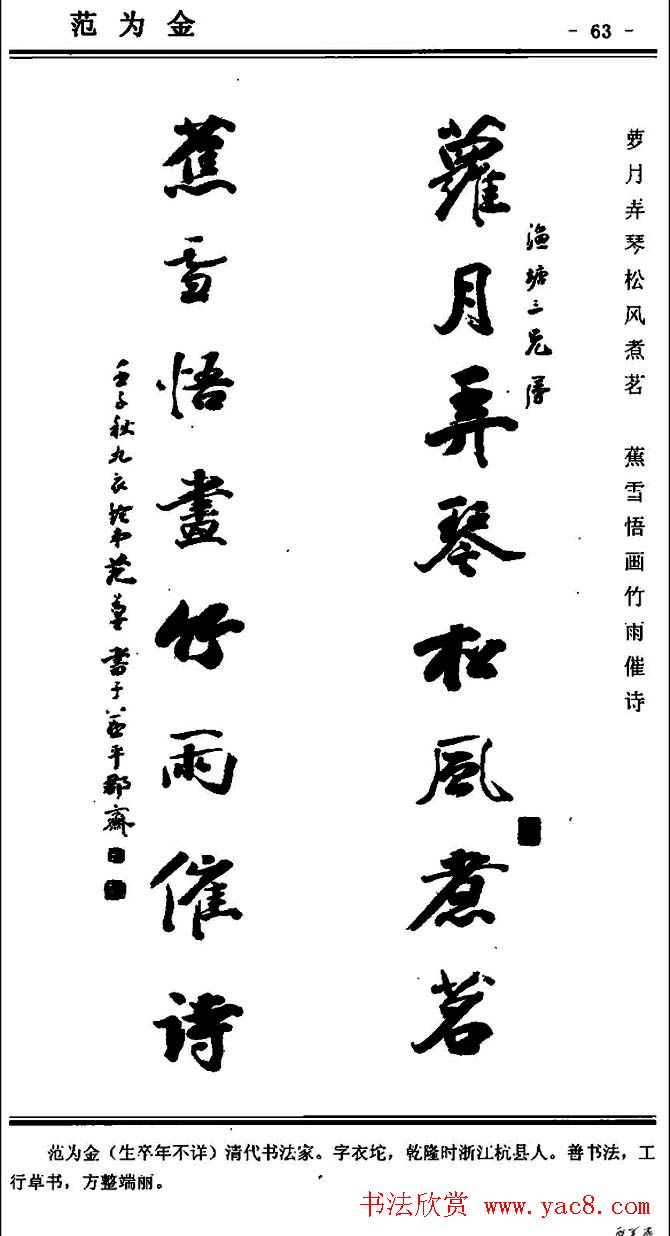 范为金
- 63 -
萝月弄琴松风煮茗 蕉雪悟画竹雨催诗
渔塘三兄属
蘿月弄琴松風煮茗
蕉雪悟畫竹雨催詩
壬子秋九
書于
平郡齋
范为金（生卒年不详）清代书法家。字衣坨，乾隆时浙江杭县人。善书法，工
行草书，方整端丽。
书法欣赏 www.yac8.com